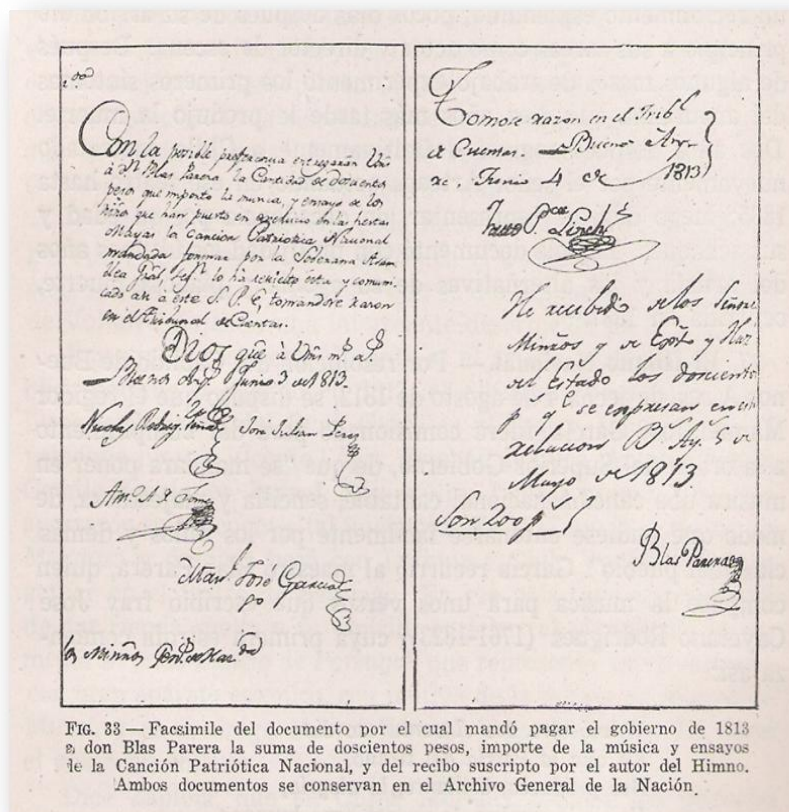 200
Con la posible preferencia entregarán Vms
à Dn Blas Parera la Cantidad de doscientos
pesos que importó la musica, y ensayo de los
niños que han puesto en execucion en las fiestas
Mayas la Cancion Patriotica Nacional
mandada formar por la Soberana Asam-
blea
lo ha resuelto esta y comuni-
cado asi à este S. P. E, tomandose razon
en el Tribunal de Cuentas.
Dios gue à Vms ms as
Buenos Ays Junio 3 de 1813.
Nicolas Rodrig Peña José Julian Perez
Man.l José Garcia
los Mintros
Tomose razon en el Trib.l
de Cuentas Buenos Ays
de Junio 4 de 1813
Linch
He recibido de los Señores
Mintros
del Estado los doscientos
p q.e se expresan en esta
relacion Bs Ays 5 de
Mayo de 1813
Son 200 p
Blas Parera
FIG. 33 — Facsimile del documento por el cual mandó pagar el gobierno de 1813
a don Blas Parera la suma de doscientos pesos, importe de la música y ensayos
de la Canción Patriótica Nacional, y del recibo suscripto por el autor del Himno.
Ambos documentos se conservan en el Archivo General de la Nación.